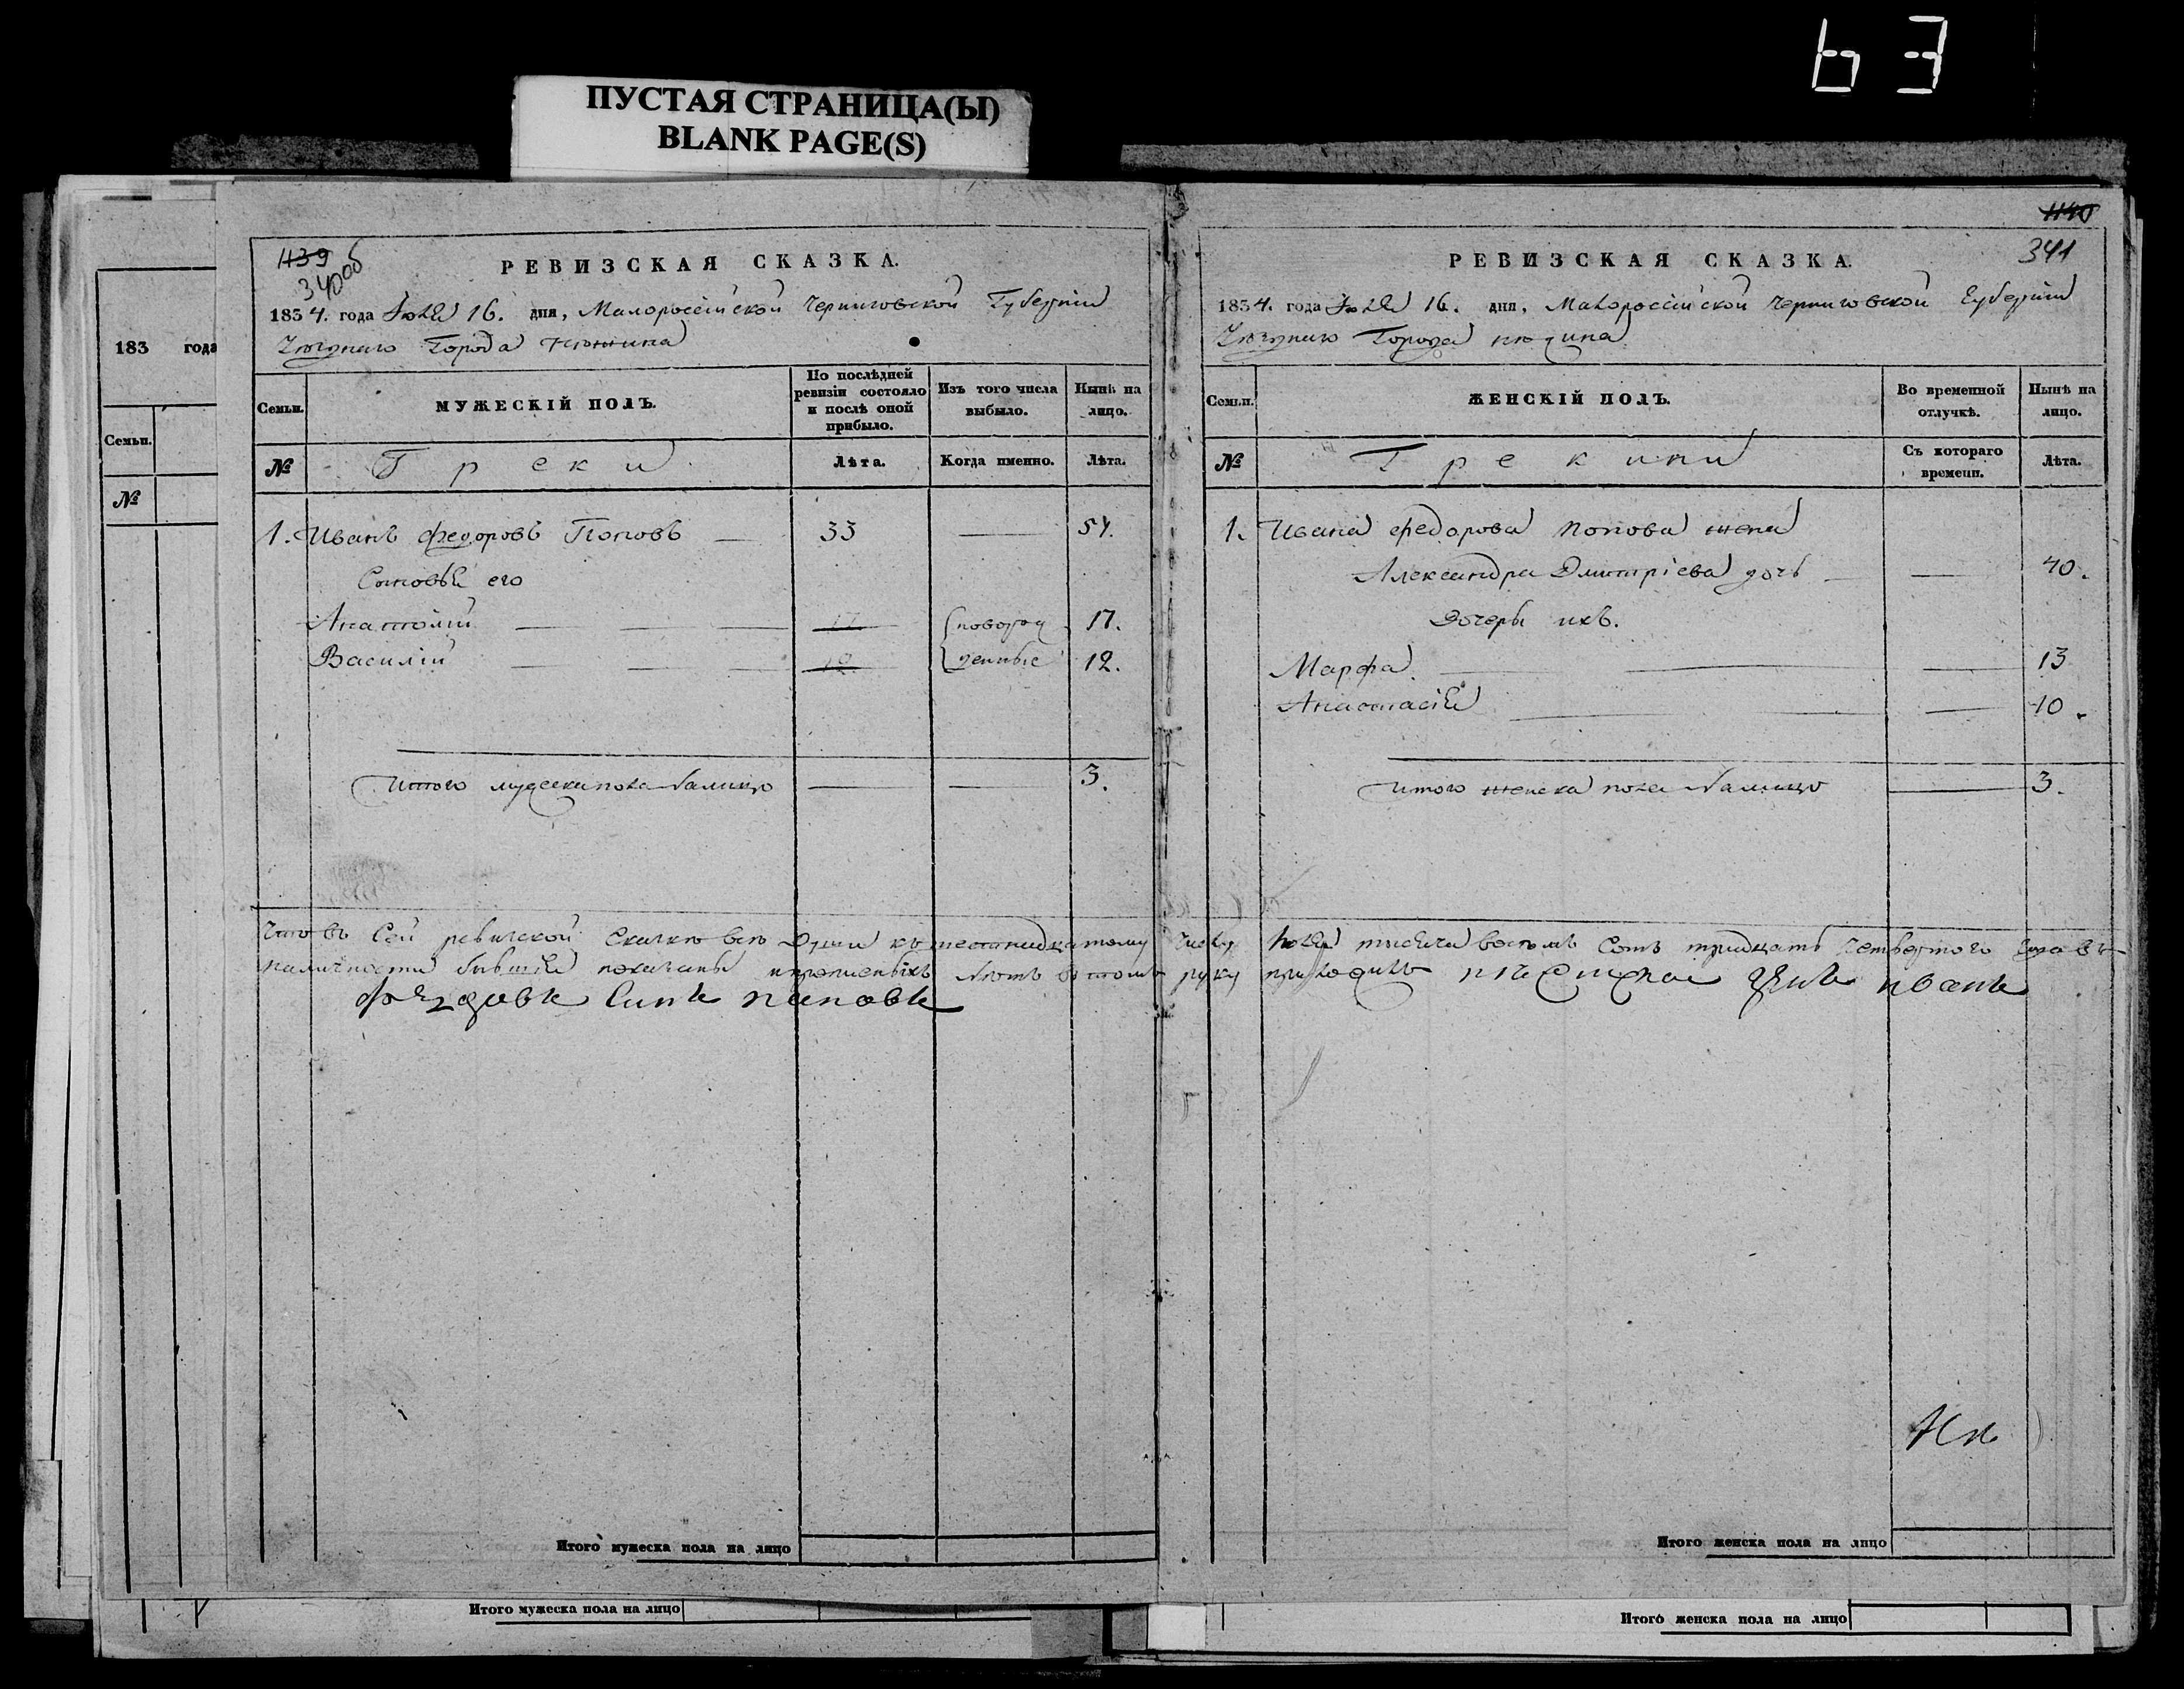 ЬЗ
ПУСТАЯ СТРАНИЦА(Ы)
BLANK PAGE(S)
183 года
Семьи.
№
1139
340об
РЕВИЗСКАЯ СКАЗКА.
1834. года Іюля 16. дня, Малороссійской Черниговской Губерніи
Города Нѣжина
Семьи.
МУЖЕСКІЙ ПОЛЪ.
По послѣдней ревизіи состояло и послѣ оной прибыло.
Изъ того числа выбыло.
Нынѣ на лицо.
№
Греки
Лѣта.
Когда именно.
Лѣта.
1. Иванъ Федоровъ Поповъ — 33 — 54.
Сыновья его
Анатолій — 17 новорож 17.
Василій — 12 денные 12.
Итого мужеска пола налицо — — 3.
1140
341
РЕВИЗСКАЯ СКАЗКА.
1834. года Іюля 16. дня, Малороссійской Черниговской Губерніи
Города Нѣжина
Семьи.
ЖЕНСКІЙ ПОЛЪ.
Во временной отлучкѣ.
Нынѣ на лицо.
№
Грекини
Съ котораго времени.
Лѣта.
1. Ивана Федорова Попова жена
Александра Дмитріева дочь — 40.
Дочери ихъ.
Марфа — 13
Анастасія — 10.
Итого женска пола налицо — 3.
Что въ Сей ревизской Сказкѣ всѣ Души къ шестнадцатому числу Іюля тысяча восемь Сотъ тридцать четвертого года въ
наличности бывшія показаны и прописныхъ нѣтъ въ томъ руку приложилъ грекъ иванъ
федоровъ Синъ поповъ
Итого мужеска пола на лицо
Итого женска пола на лицо
Итого мужеска пола на лицо
Итого женска пола на лицо